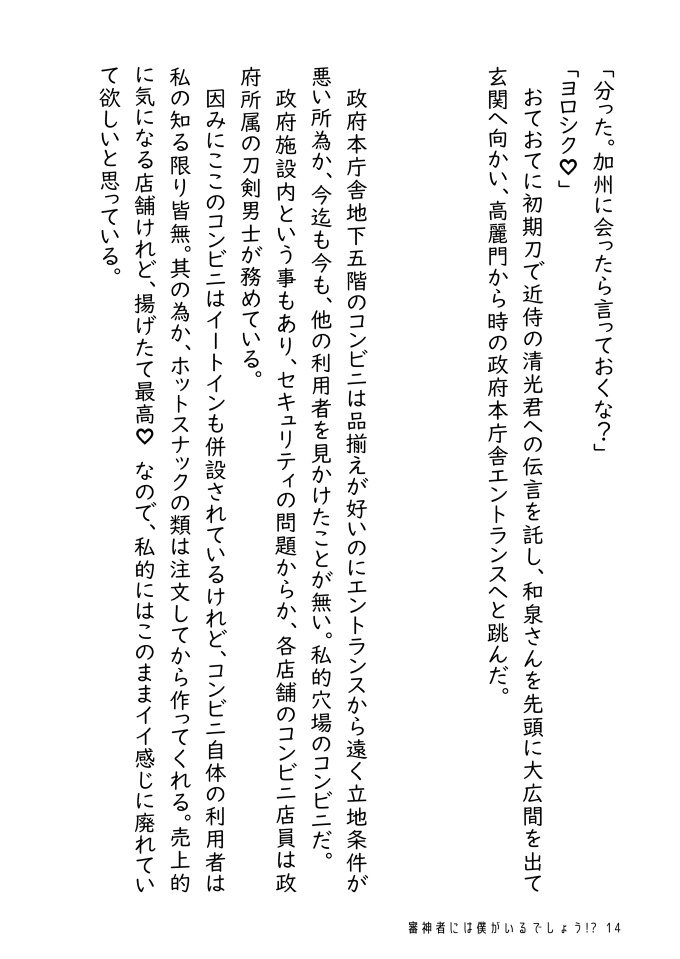 「分った。加州に会ったら言っておくな?」
「ヨロシク♡」
　おておてに初期刀で近侍の清光君への伝言を託し、和泉さんを先頭に大広間を出て
玄関へ向かい、高麗門から時の政府本庁舎エントランスへと跳んだ。
　政府本庁舎地下五階のコンビニは品揃えが好いのにエントランスから遠く立地条件が
悪い所為か、今迄も今も、他の利用者を見かけたことが無い。私的穴場のコンビニだ。
　政府施設内という事もあり、セキュリティの問題からか、各店舗のコンビニ店員は政
府所属の刀剣男士が務めている。
　因みにここのコンビニはイートインも併設されているけれど、コンビニ自体の利用者は
私の知る限り皆無。其の為か、ホットスナックの類は注文してから作ってくれる。売上的
に気になる店舗けれど、揚げたて最高♡　なので、私的にはこのままイイ感じに廃れてい
て欲しいと思っている。
審神者には僕がいるでしょう!? 14